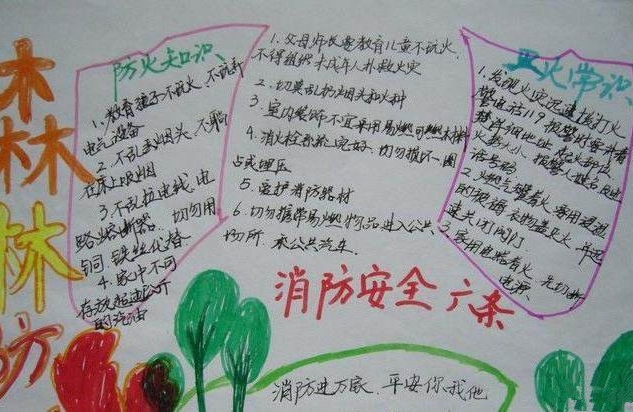 森
林
防
防火知识
1、教育孩子不玩火、不玩弄
电气设备
2、不乱丢烟头、不躺
在床上吸烟
3、不乱拉电线、电
路熔断器、切勿用
铜、铁丝代替
4、家中不可
存放超过
的汽油
1、父母师长要教育儿童不玩火、
不得组织未成年人扑救火灾
2、切莫乱扔烟头和火种
3、室内装饰不宜采用易燃可燃材料
4、消火栓系统完好、切勿损坏、圈
占或埋压
5、爱护消防器材
6、切勿携带易燃物品进入公共
场所、乘公共汽车
消防安全 六条
灭火常识
1、发现火灾迅速拨打火
警电话119 报警时要讲清
楚详细地址、起火部位
火势大小、报警人姓名及电
话号码
2、燃气罐着火、要用浸湿
的被褥、衣物盖灭火、并迅
速关闭阀门
3、家用电器着火、先切断
电源
消防进万家、平安你我他